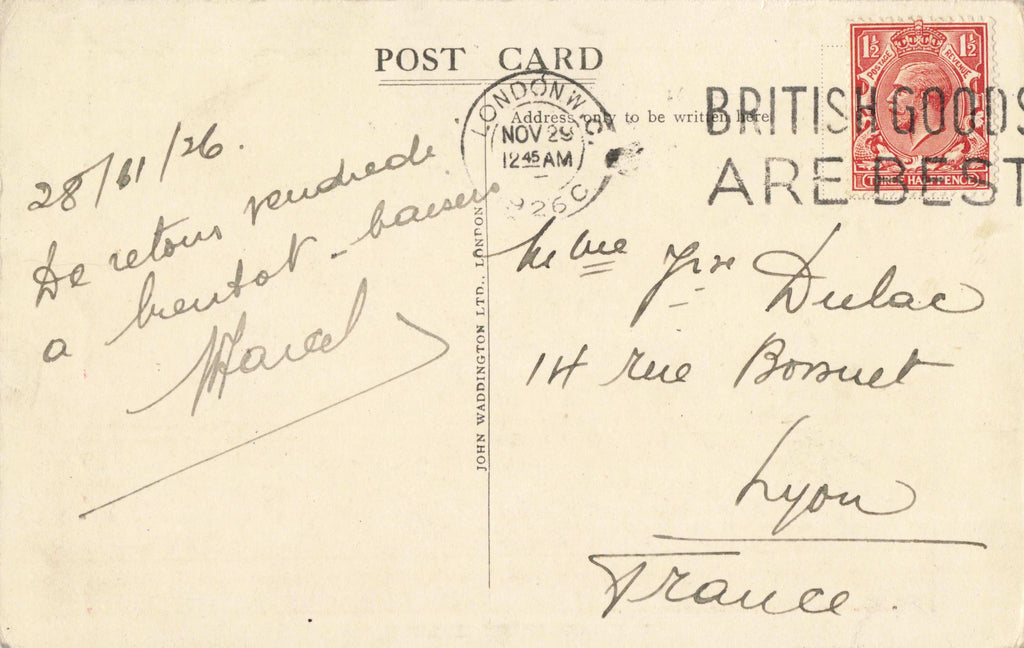 POST CARD
Address only to be written here
LONDON W.C.
NOV 29
12 45 AM
1926 C
BRITISH GOODS
ARE BEST
1½ 1½
POSTAGE REVENUE
THREE HALFPENCE
28/11/26.
De retour vendredi
a bientot - baisers
Marcel
JOHN WADDINGTON LTD., LONDON
Mme Dulac
14 rue Bossuet
Lyon
France.